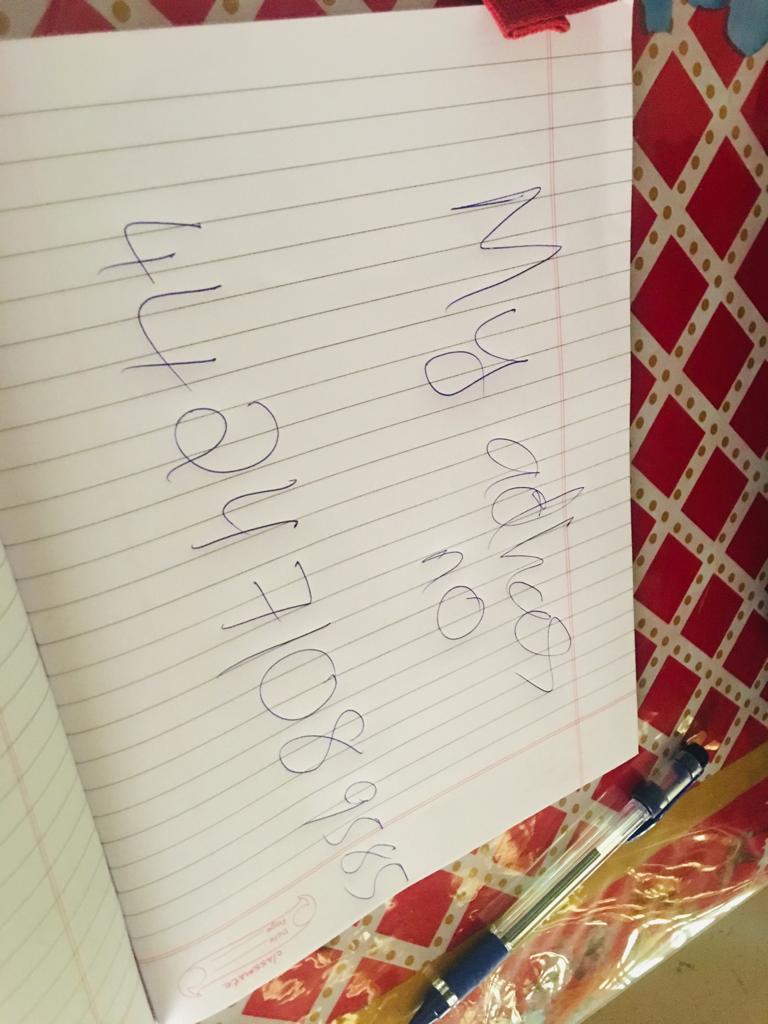 My adhar
no
4424 7108 9585
classmate
Date
Page